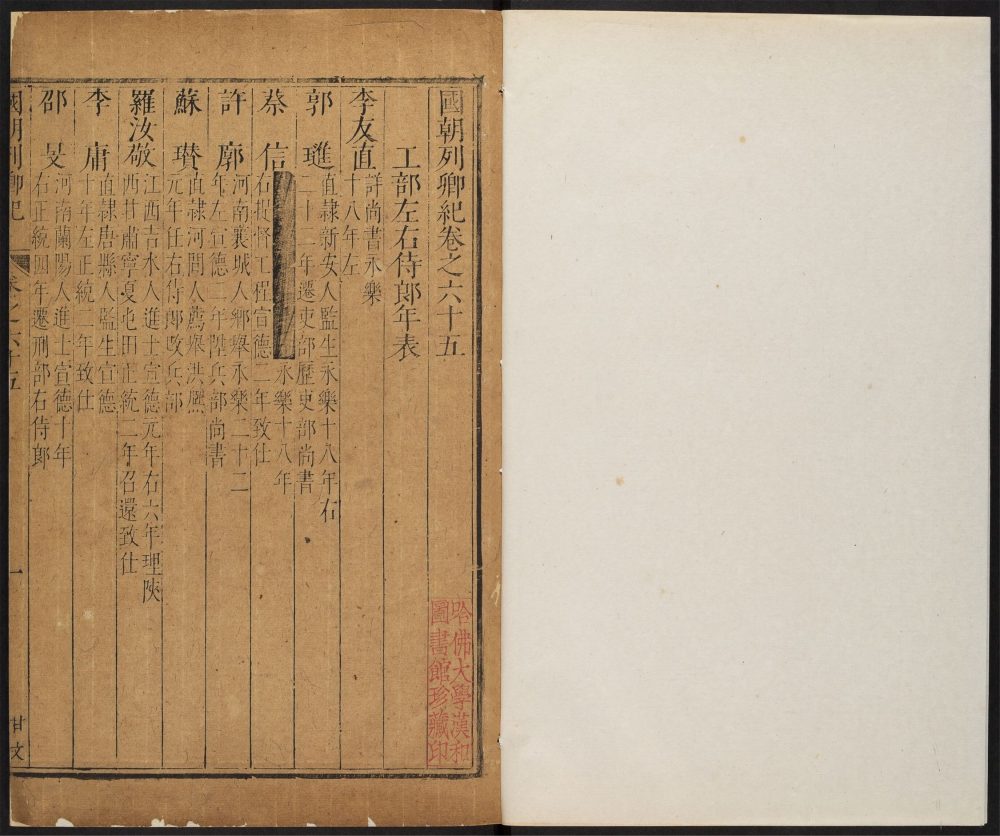 國朝列卿紀卷之六十五
工部左右侍郎年表
李友直 詳尚書永樂
十八年左
郭璡 直隸新安人監生永樂十八年右
二十二年遷吏部歷吏部尚書
蔡信 永樂十八年
右提督工程宣德二年致仕
許廓 河南襄城人鄉舉永樂二十二
年左宣德二年陞兵部尚書
蘇瓚 直隸河間人薦舉洪熙
元年任右侍郎改兵部
羅汝敬 江西吉水人進士宣德元年右六年理陝
西甘肅寧夏屯田正統二年召還致仕
李庸 直隸唐縣人監生宣德
十年左正統二年致仕
邵旻 河南蘭陽人進士宣德十年
右正統四年遷刑部右侍郎
國朝列卿紀 卷之六十五 一 甘文
哈佛大學漢和
圖書館珍藏印